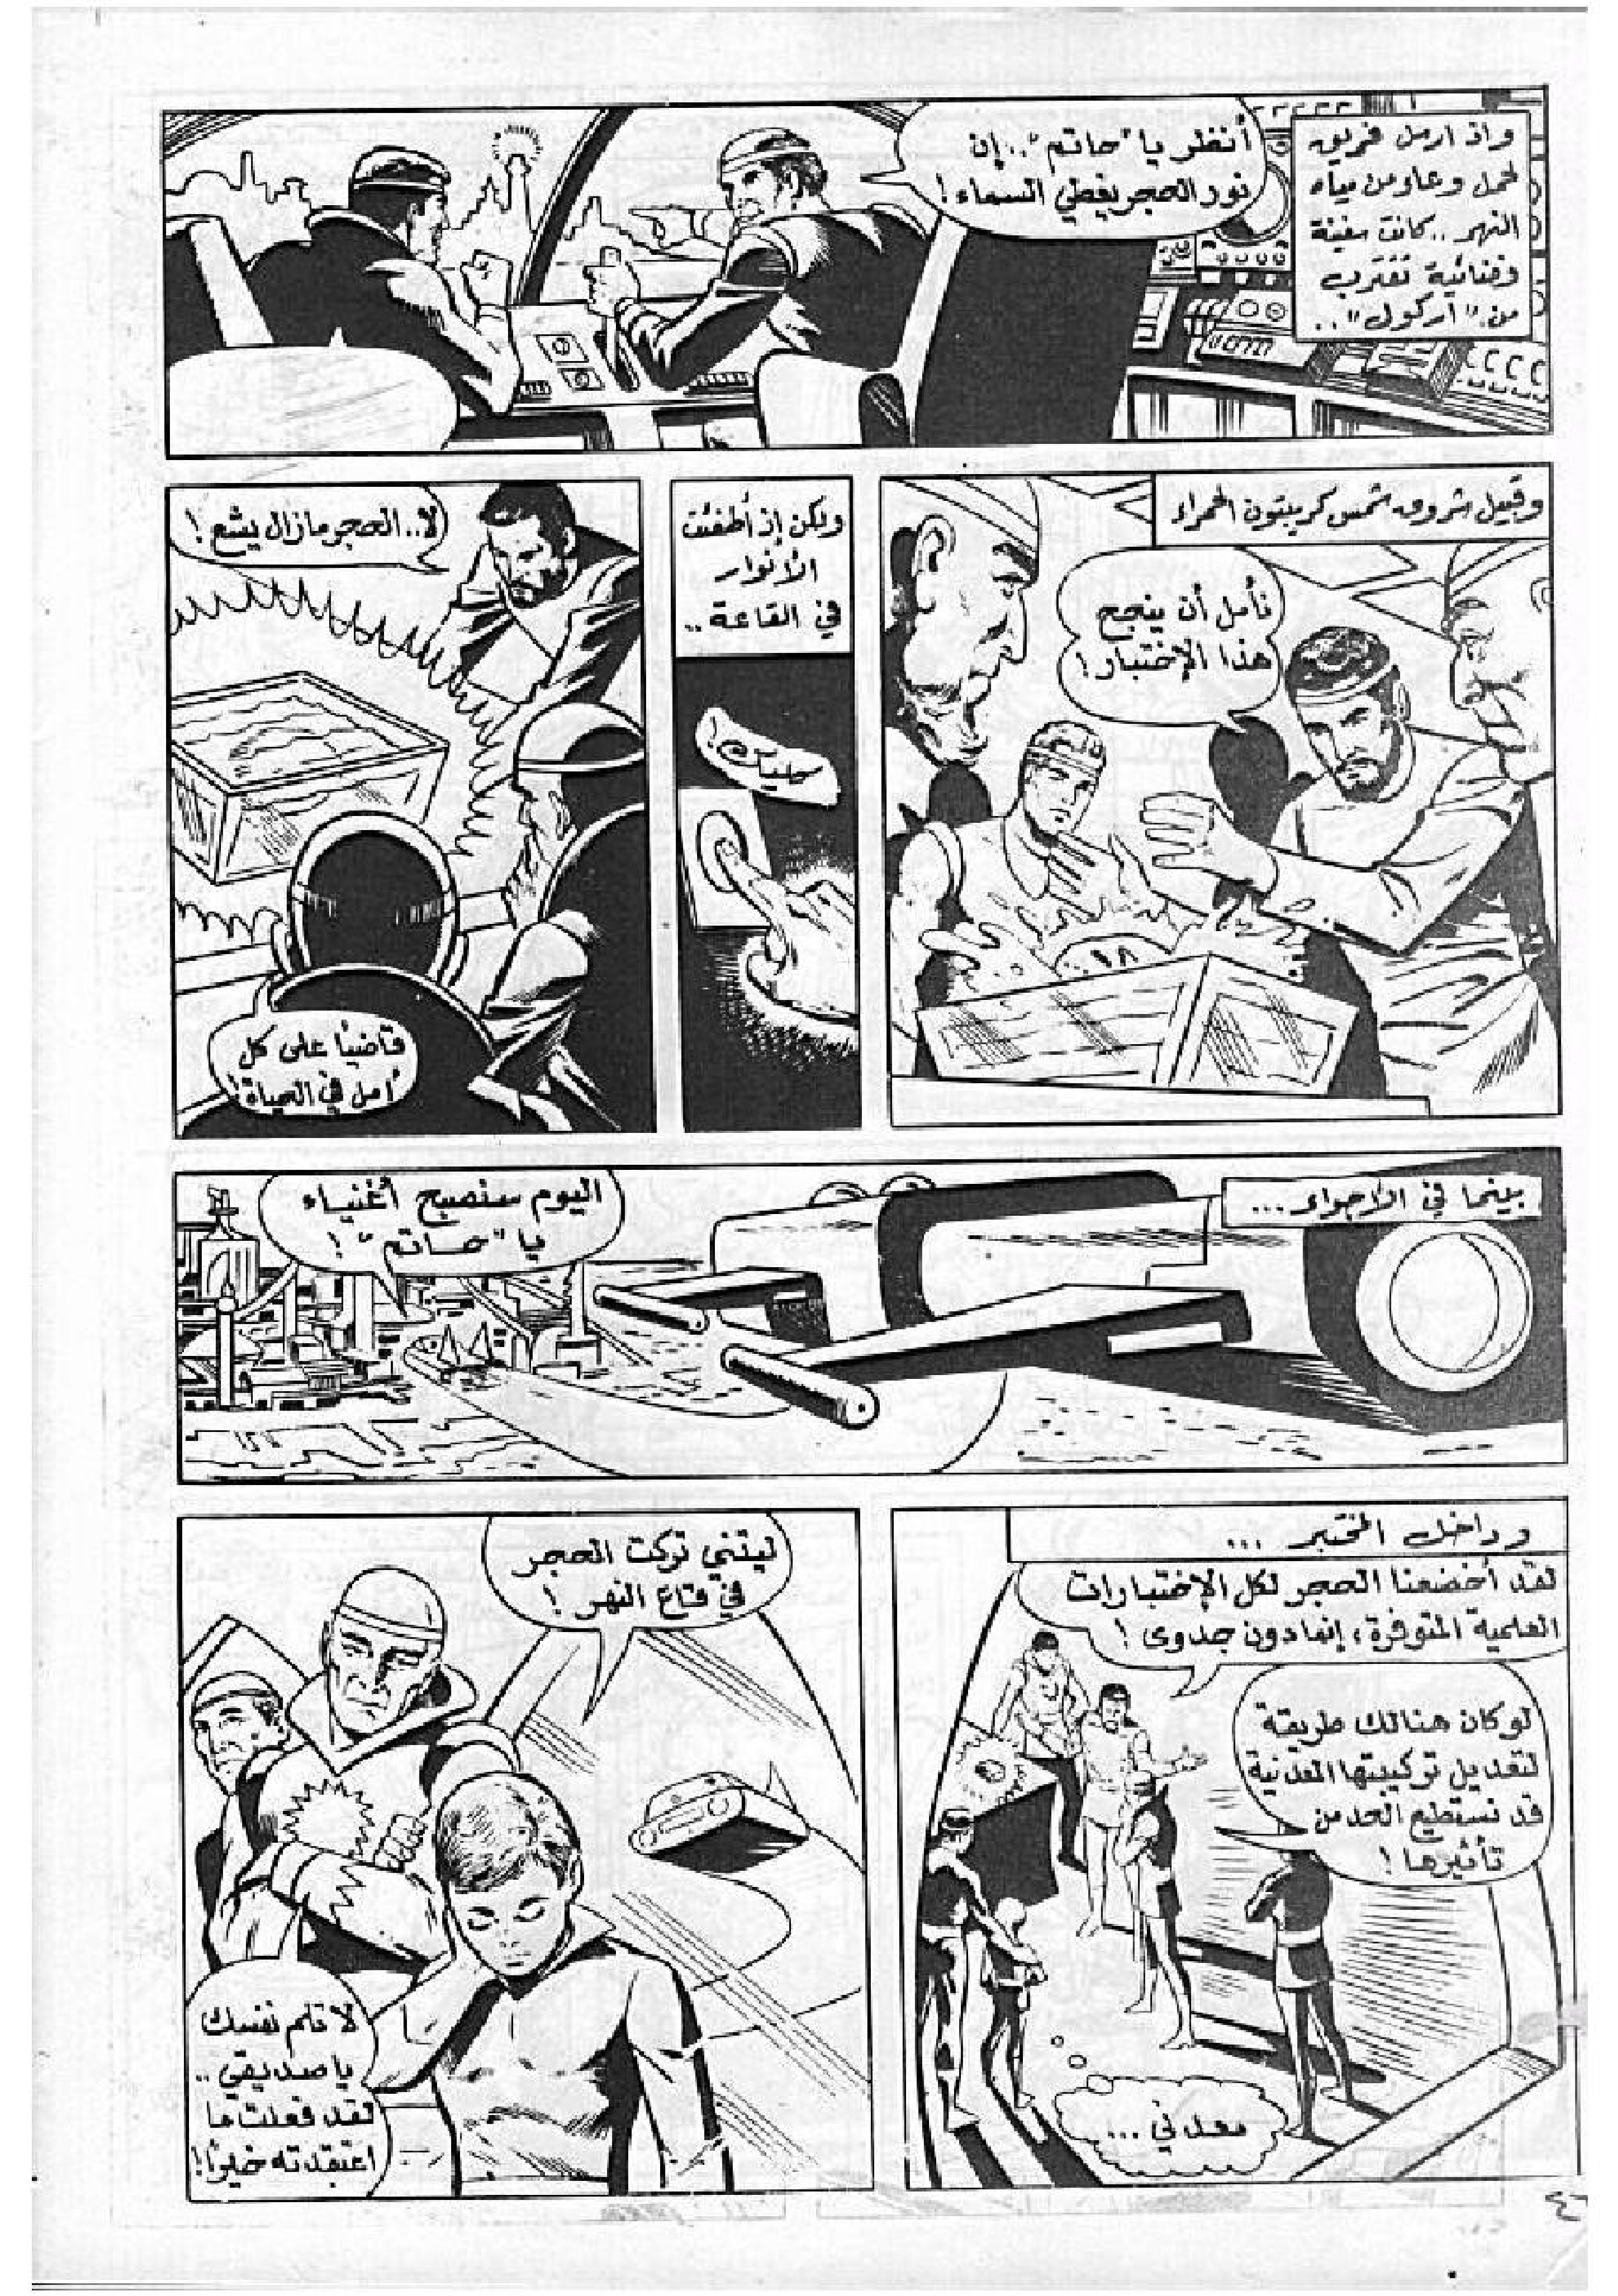 واذ ارسل فريق
لحمل وعاء من مياه
النهر .. كانت سفينة
فضائية تقترب
من "اركول" ..
أنظر يا "حاتم" .. إن
نور الحجر يغطي السماء !
وقبيل شروق شمس كريبتون الحمراء
نأمل أن ينجح
هذا الإختبار !
ولكن إذ أطفئت
الأنوار
في القاعة ..
كليك !
لا .. الحجر مازال يشع !
قاضياً على كل
أمل في الحياة !
بينما في الأجواء ...
اليوم سنصبح أغنياء
يا "حاتم" !
وداخل المختبر ...
لقد أخضعنا الحجر لكل الإختبارات
العلمية المتوفرة ، إنما دون جدوى !
لو كان هنالك طريقة
لتعديل تركيبتها المعدنية
قد نستطيع الحد من
تأثيرها !
معدني ...
ليتني تركت الحجر
في قاع النهر !
لا تلم نفسك
يا صديقي ..
لقد فعلت ما
اعتقدته خيراً !
٤٦